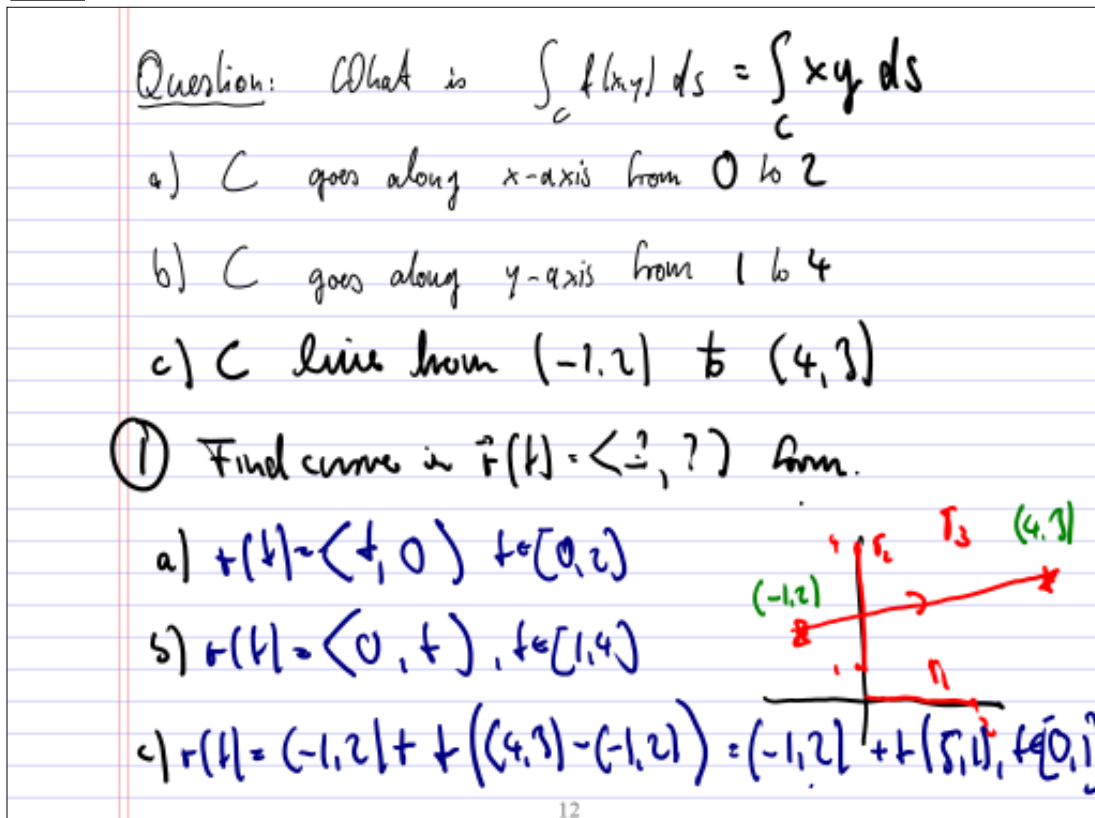 Question: What is ∫_C f(x,y) ds = ∫_C xy ds
a) C goes along x-axis from 0 to 2
b) C goes along y-axis from 1 to 4
c) C line from (-1,2) to (4,3)
① Find curve in r⃗(t) = <?, ?> form.
a) r(t) = <t, 0> t∈[0,2]
b) r(t) = <0, t>, t∈[1,4]
c) r(t) = (-1,2) + t((4,3)-(-1,2)) = (-1,2) + t(5,1), t∈[0,1]
4 Γ₂ Γ₃ (4,3)
(-1,2)
1 Γ₁
2
12